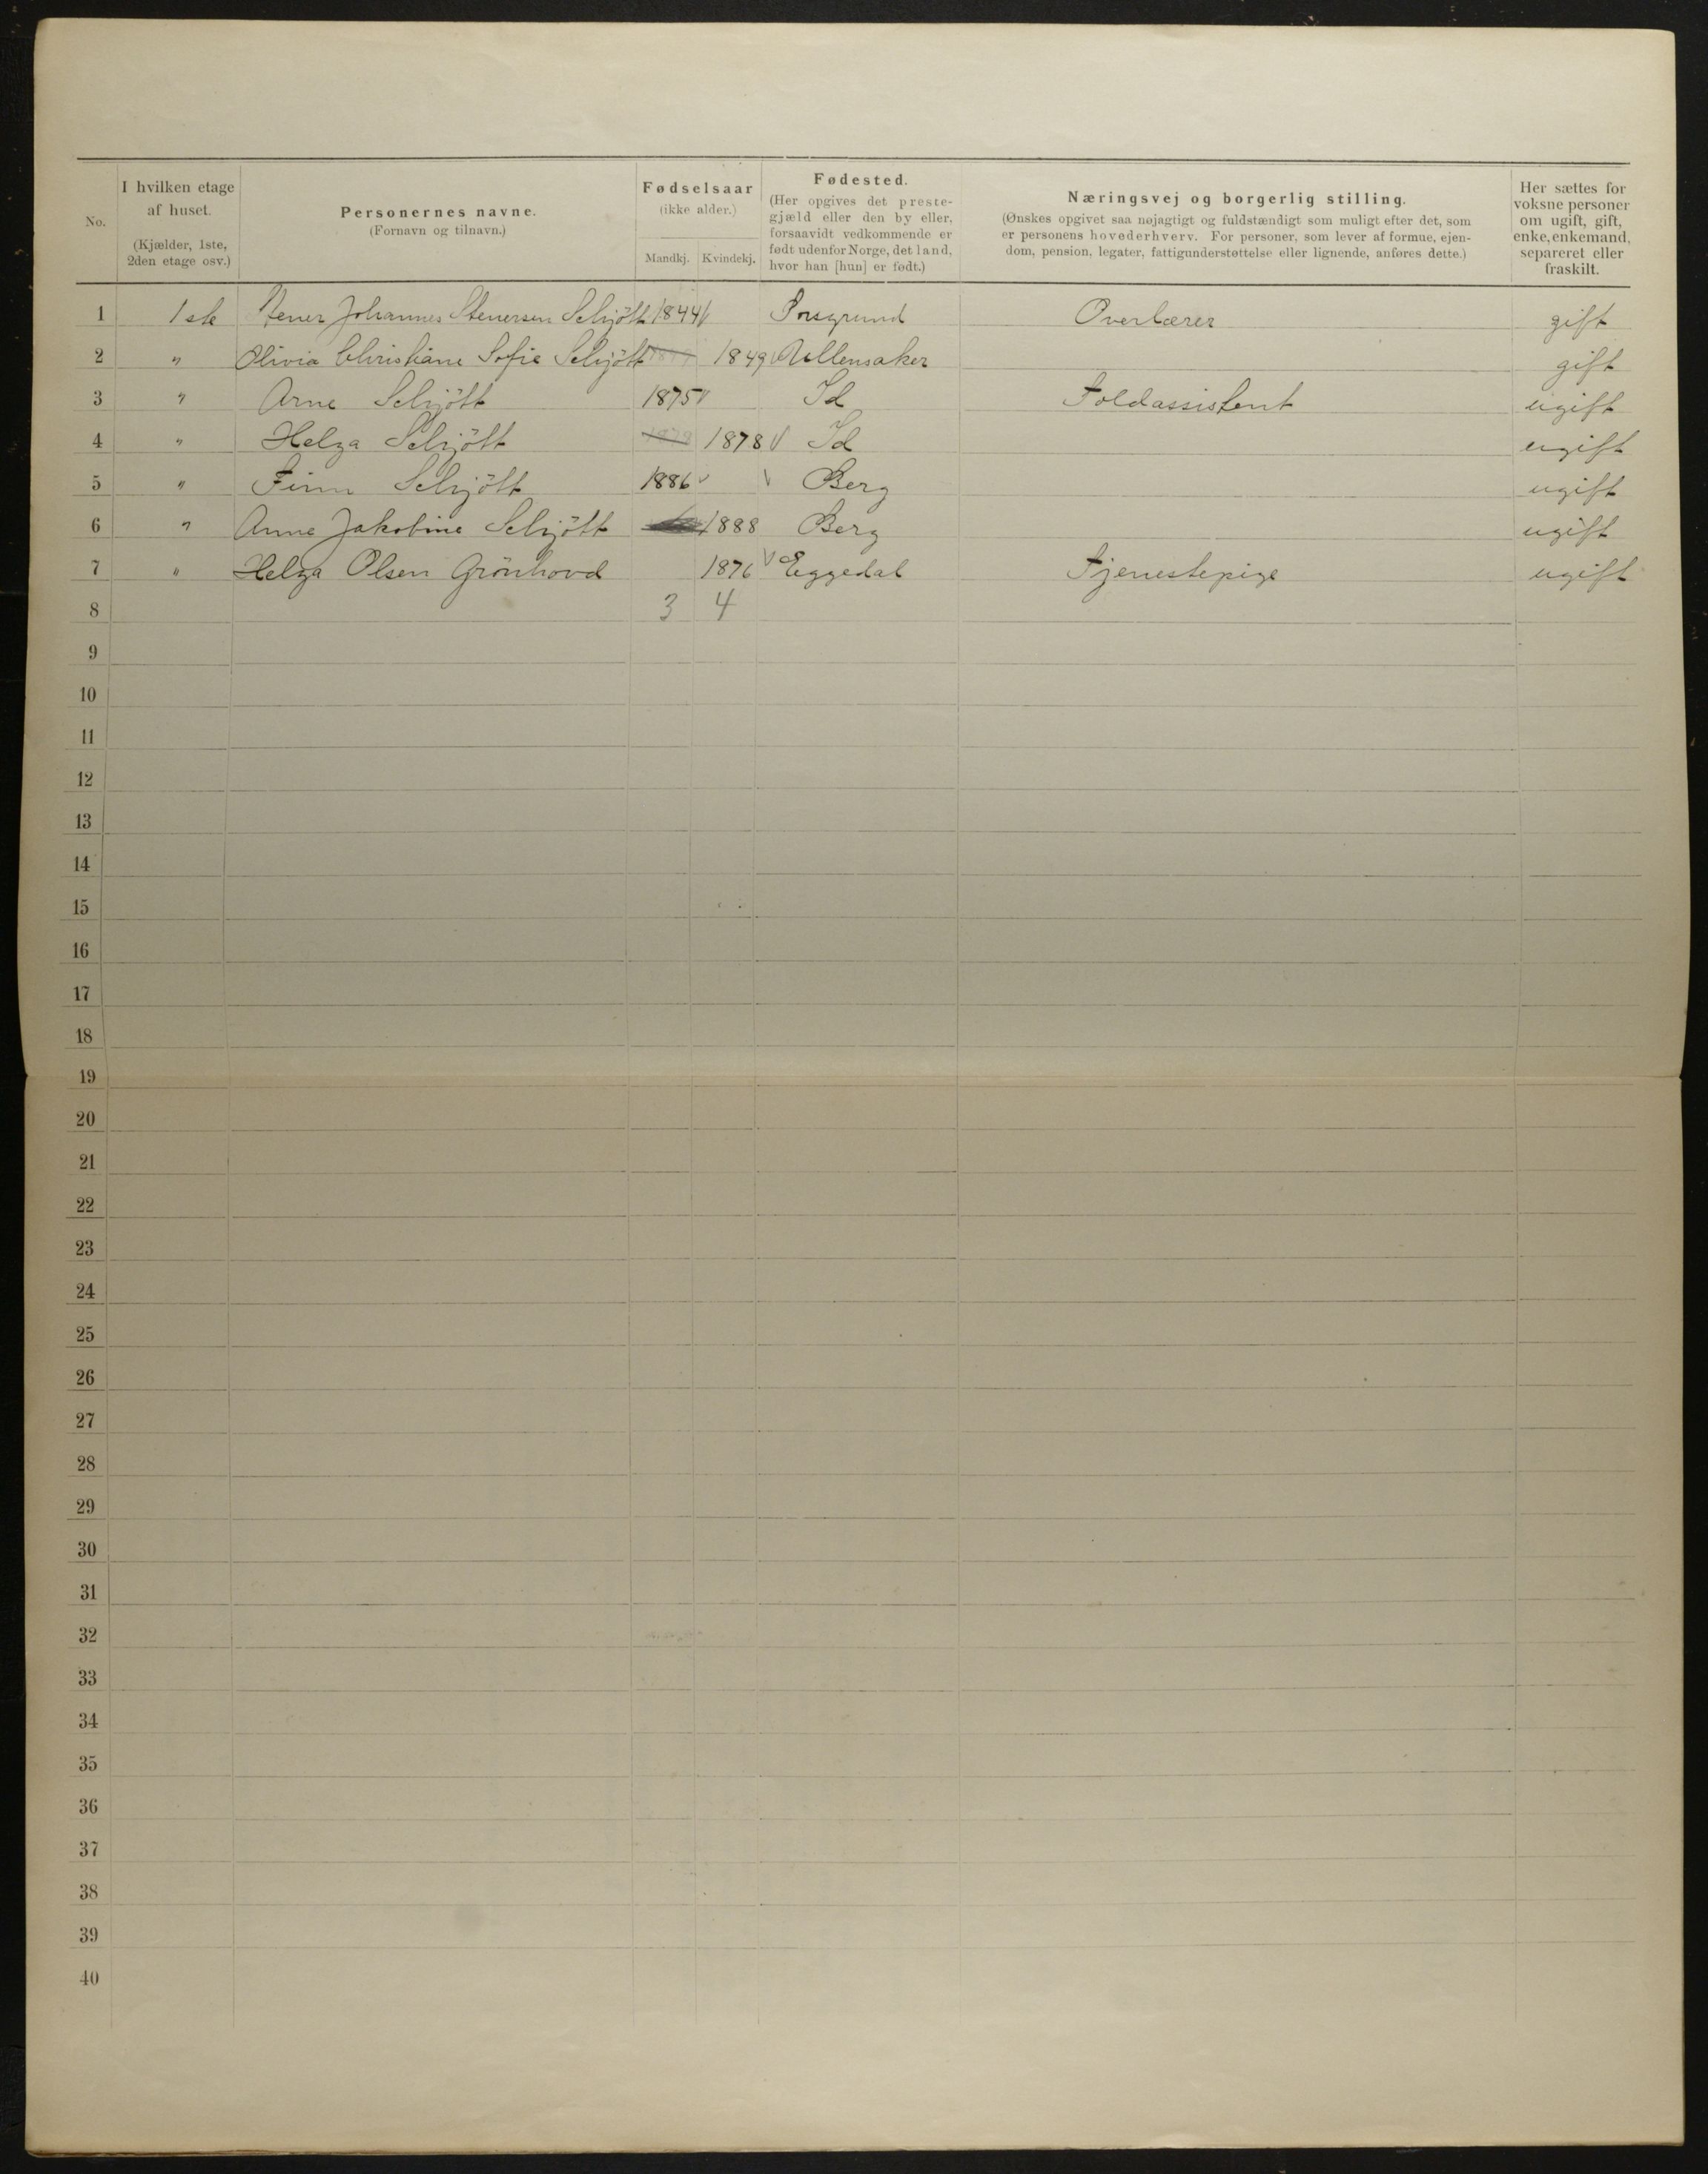 No.
I hvilken etage af huset. (Kjælder, 1ste, 2den etage osv.)
Personernes navne. (Fornavn og tilnavn.)
Fødselsaar (ikke alder.)
Mandkj. Kvindekj.
Fødested. (Her opgives det prestegjæld eller den by eller, forsaavidt vedkommende er født udenfor Norge, det land, hvor han [hun] er født.)
Næringsvej og borgerlig stilling. (Ønskes opgivet saa nøjagtigt og fuldstændigt som muligt efter det, som er personens hovederhverv. For personer, som lever af formue, ejendom, pension, legater, fattigunderstøttelse eller lignende, anføres dette.)
Her sættes for voksne personer om ugift, gift, enke, enkemand, separeret eller fraskilt.
1 1ste Stener Johannes Stenersen Schjött 1844 Porsgrund Overlærer gift
2 " Olivia Christiane Sofie Schjött 1849 Ullensaker gift
3 " Arne Schjött 1875 Id Toldassistent ugift
4 " Helga Schjött 1878 Id ugift
5 " Finn Schjött 1886 Berg ugift
6 " Anne Jakobine Schjött 1888 Berg ugift
7 " Helga Olsen Grönhovd 1876 Eggedal Tjenestepige ugift
8 3 4
9
10
11
12
13
14
15
16
17
18
19
20
21
22
23
24
25
26
27
28
29
30
31
32
33
34
35
36
37
38
39
40